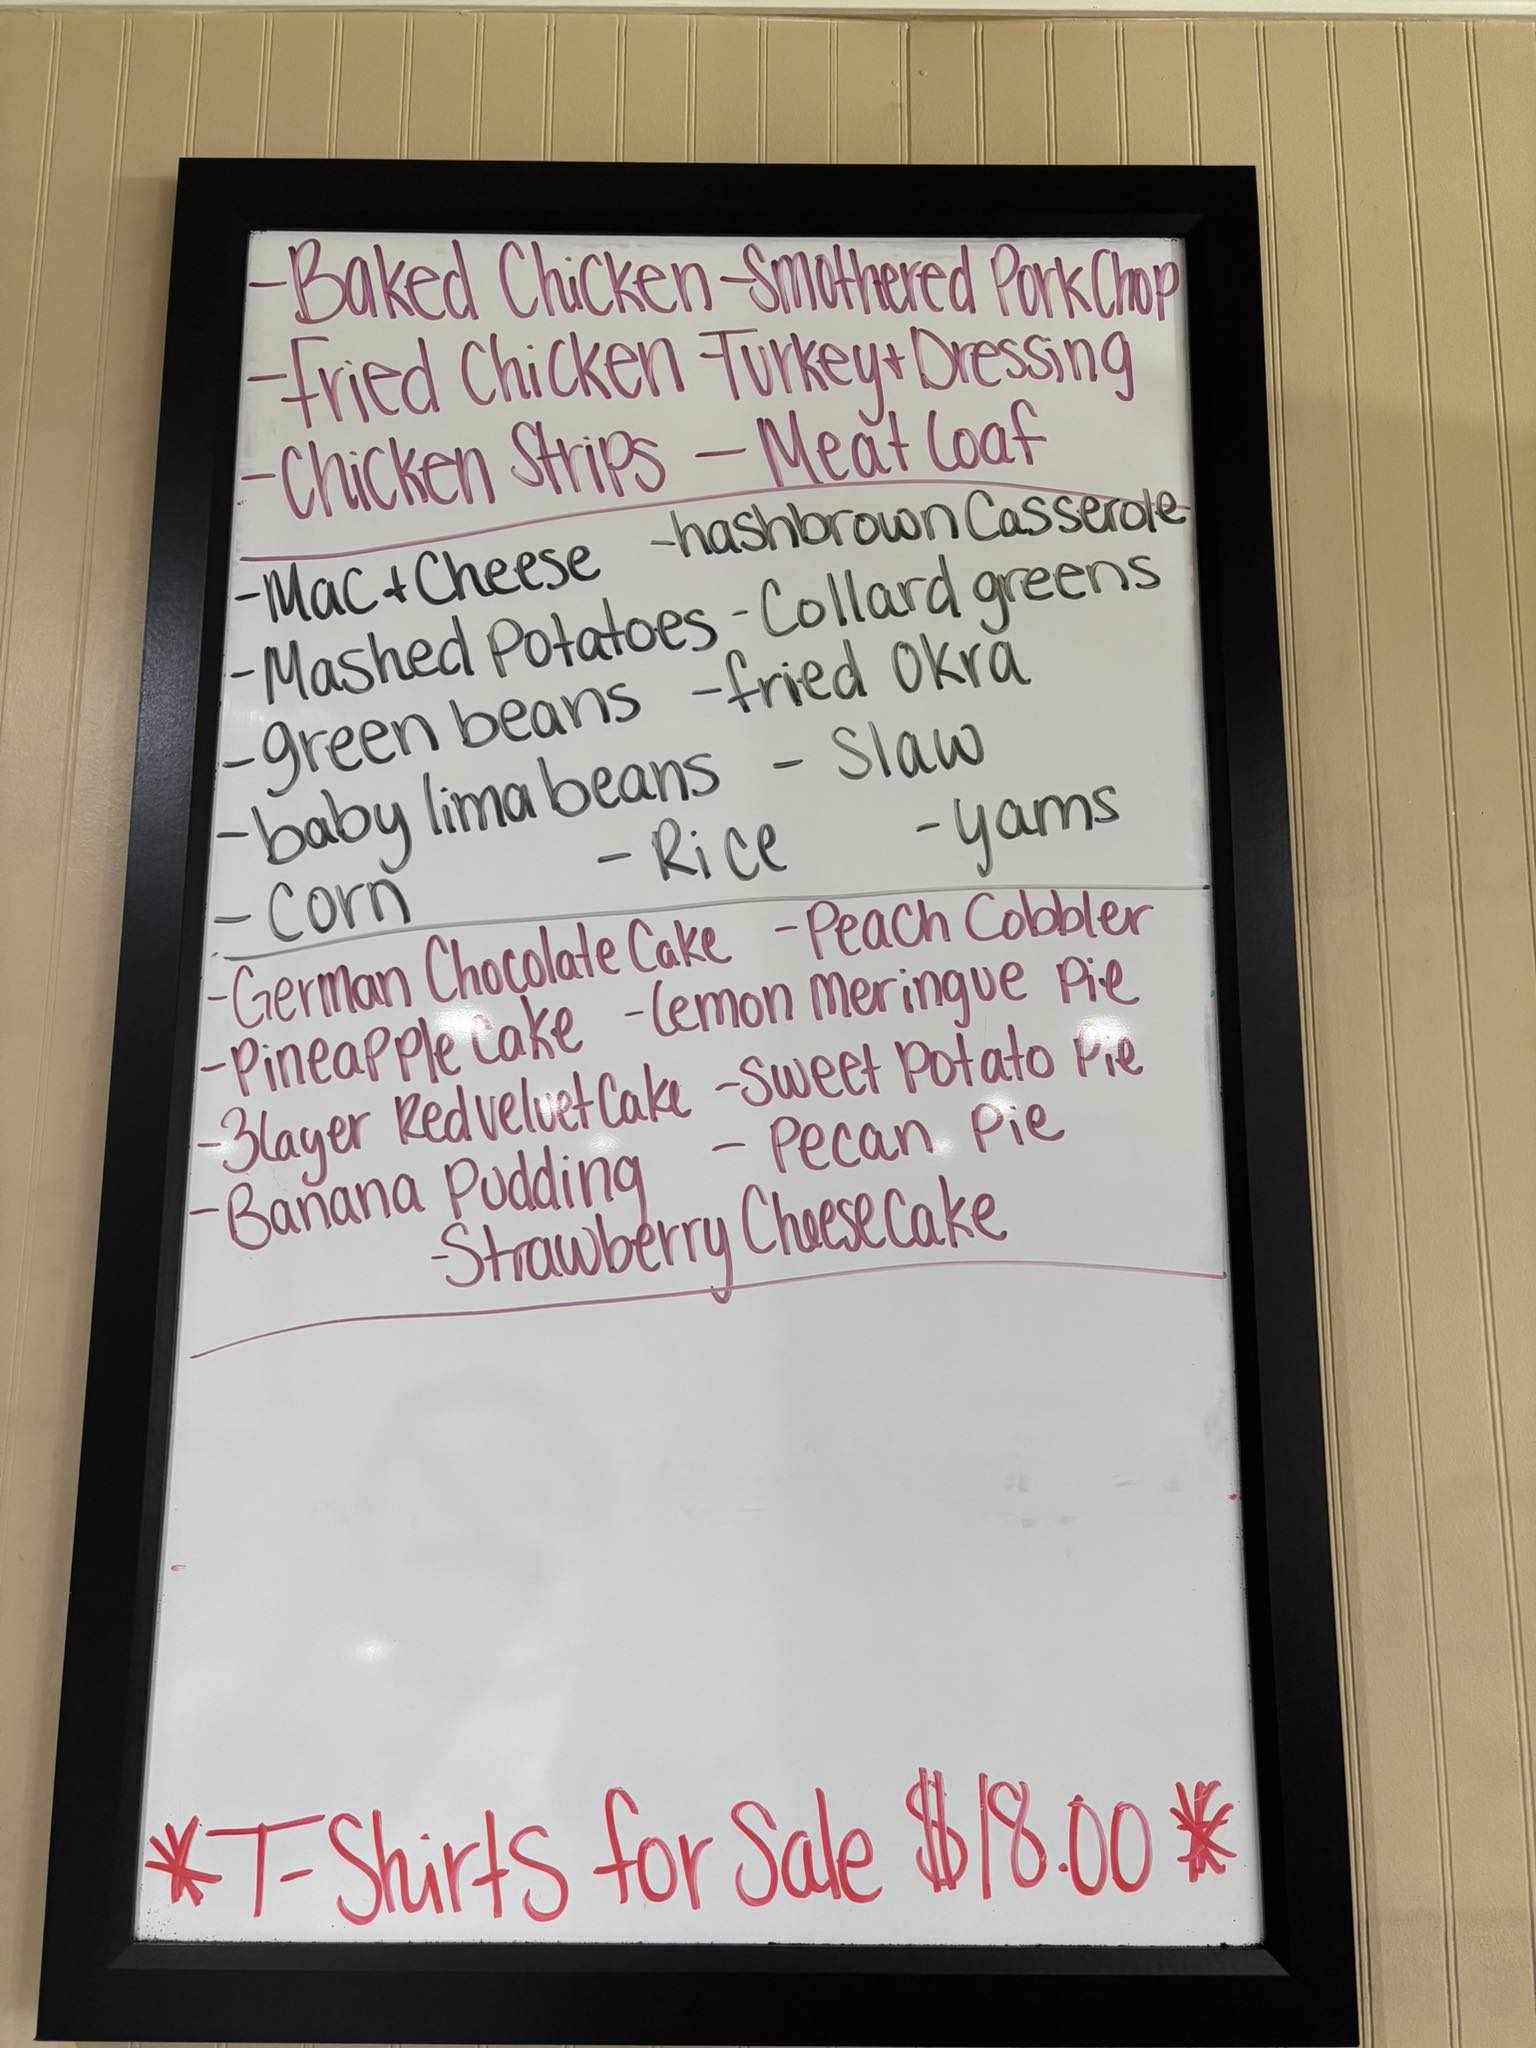 -Baked Chicken -Smothered Pork Chop
-Fried Chicken -Turkey + Dressing
-Chicken Strips - Meat Loaf
-Mac + Cheese -hashbrown Casserole
-Mashed Potatoes -Collard greens
-green beans -fried Okra
-baby lima beans - Slaw
-Corn -Rice -yams
-German Chocolate Cake -Peach Cobbler
-Pineapple Cake -Lemon Meringue Pie
-3layer Red velvet Cake -Sweet Potato Pie
-Banana Pudding - Pecan Pie
-Strawberry CheeseCake
*T-Shirts for Sale $18.00*